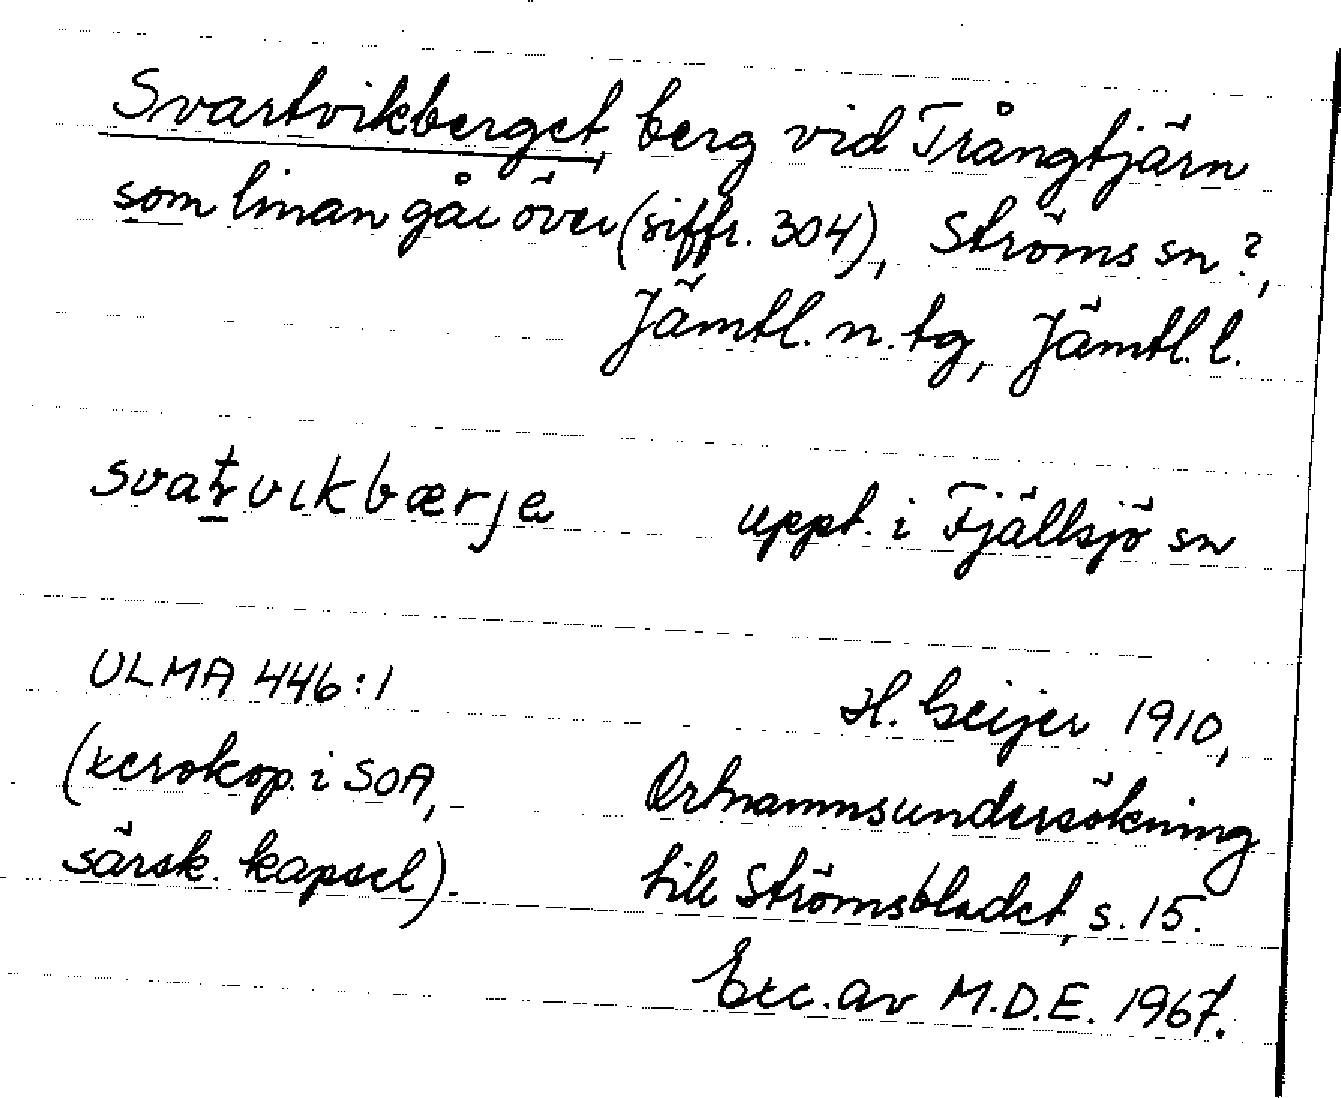 Svartvikberget, berg vid Trångtjärn
som linan går över (siffr. 304), Ströms sn?,
Jämtl. n. tg, Jämtl. l.
svatvikbærja uppt. i Fjällsjö sn
ULMA 446:1 H. Geijer 1910,
(xerokop. i SOA, Ortnamnsundersökning
särsk. kapsel). till Strömsbladet, s. 15.
Exc. av M.D.E. 1967.